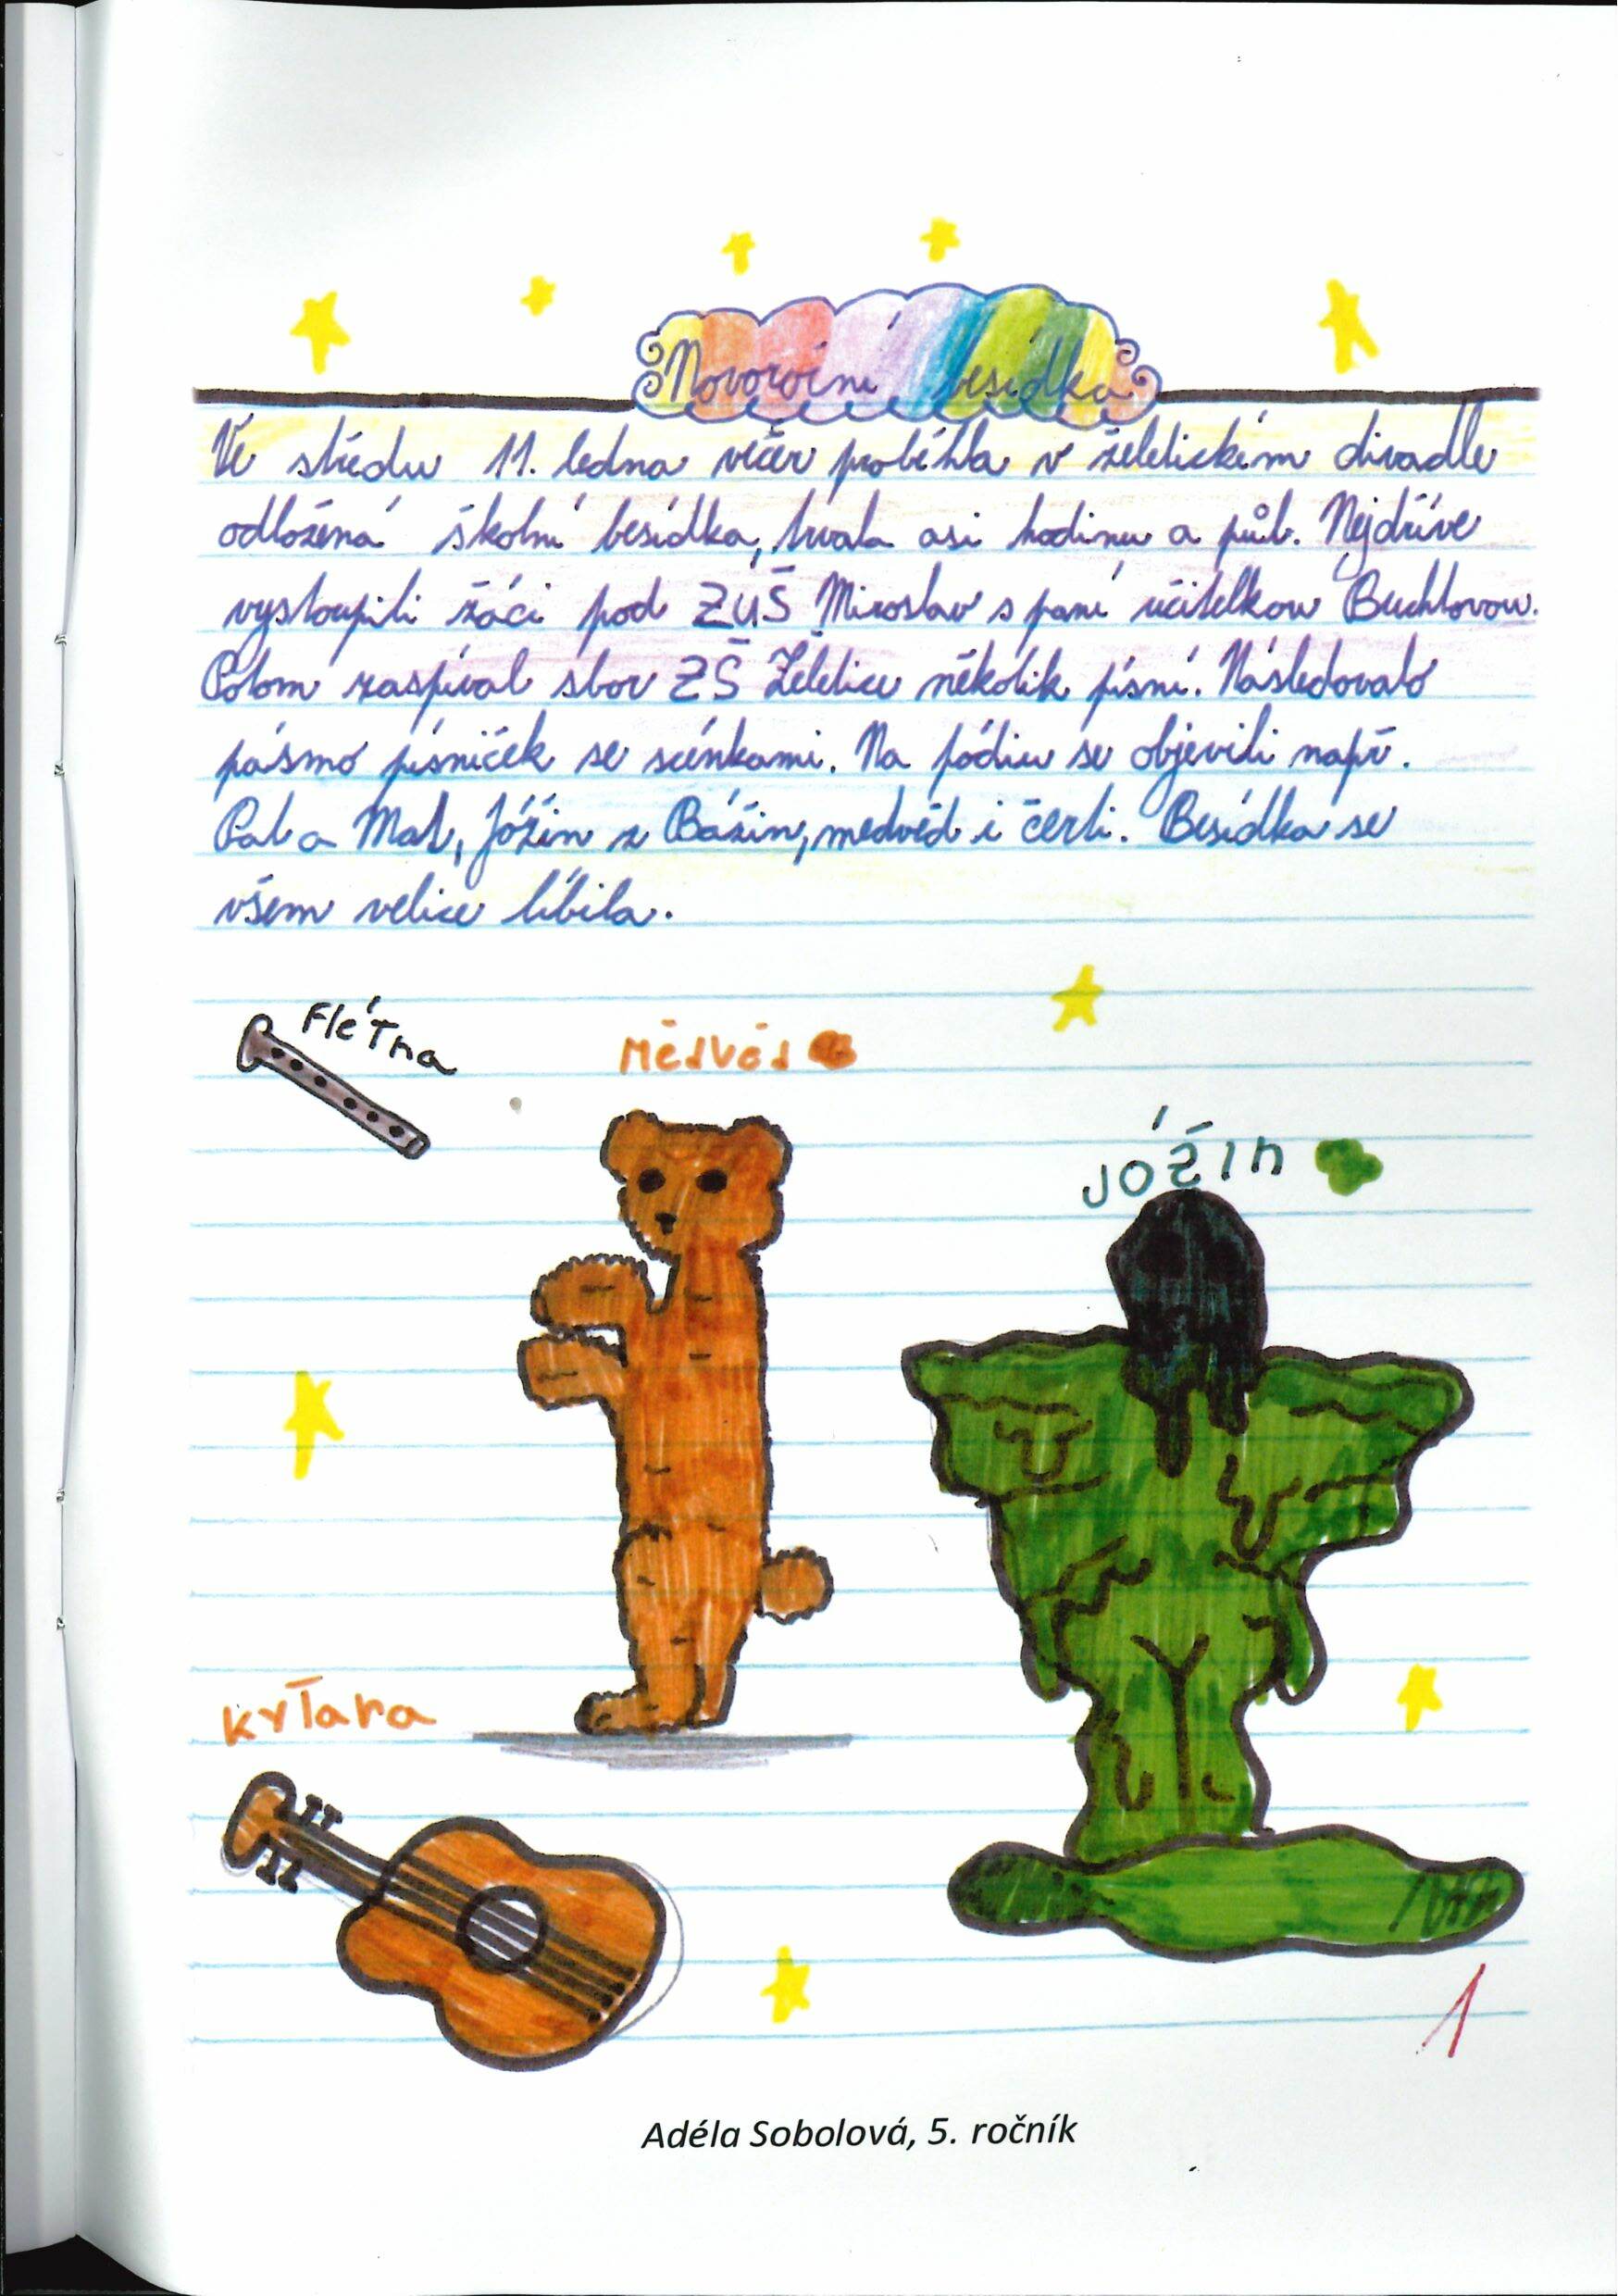 Novoroční besídka
Ve středu 11. ledna večer proběhla v želetickém divadle
odložená školní besídka, trvala asi hodinu a půl. Nejdříve
vystoupili žáci pod ZUŠ Miroslav s paní učitelkou Buchtovou.
Potom zaspíval sbor ZŠ Želetice několik písní. Následovalo
pásmo písniček se scénkami. Na pódiu se objevili např.
Pat a Mat, Jóžin z Bážin, medvěd i čerti. Besídka se
všem velice líbila.
Flétna
Mědvěd
JÓŽIN
Kytara
1
Adéla Sobolová, 5. ročník